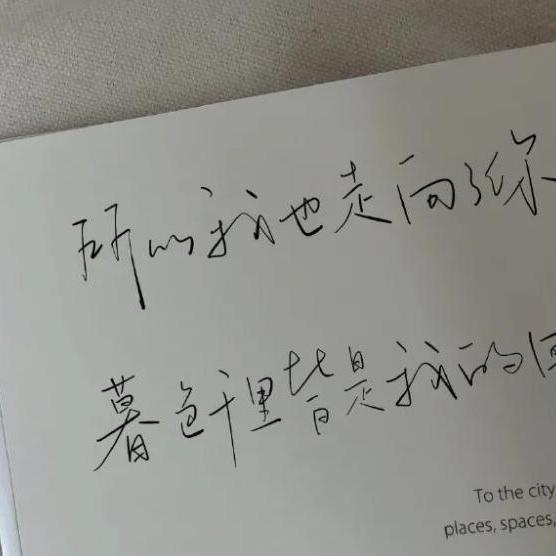 所以我也走向你
暮色千里皆是我的
To the city
places, spaces,